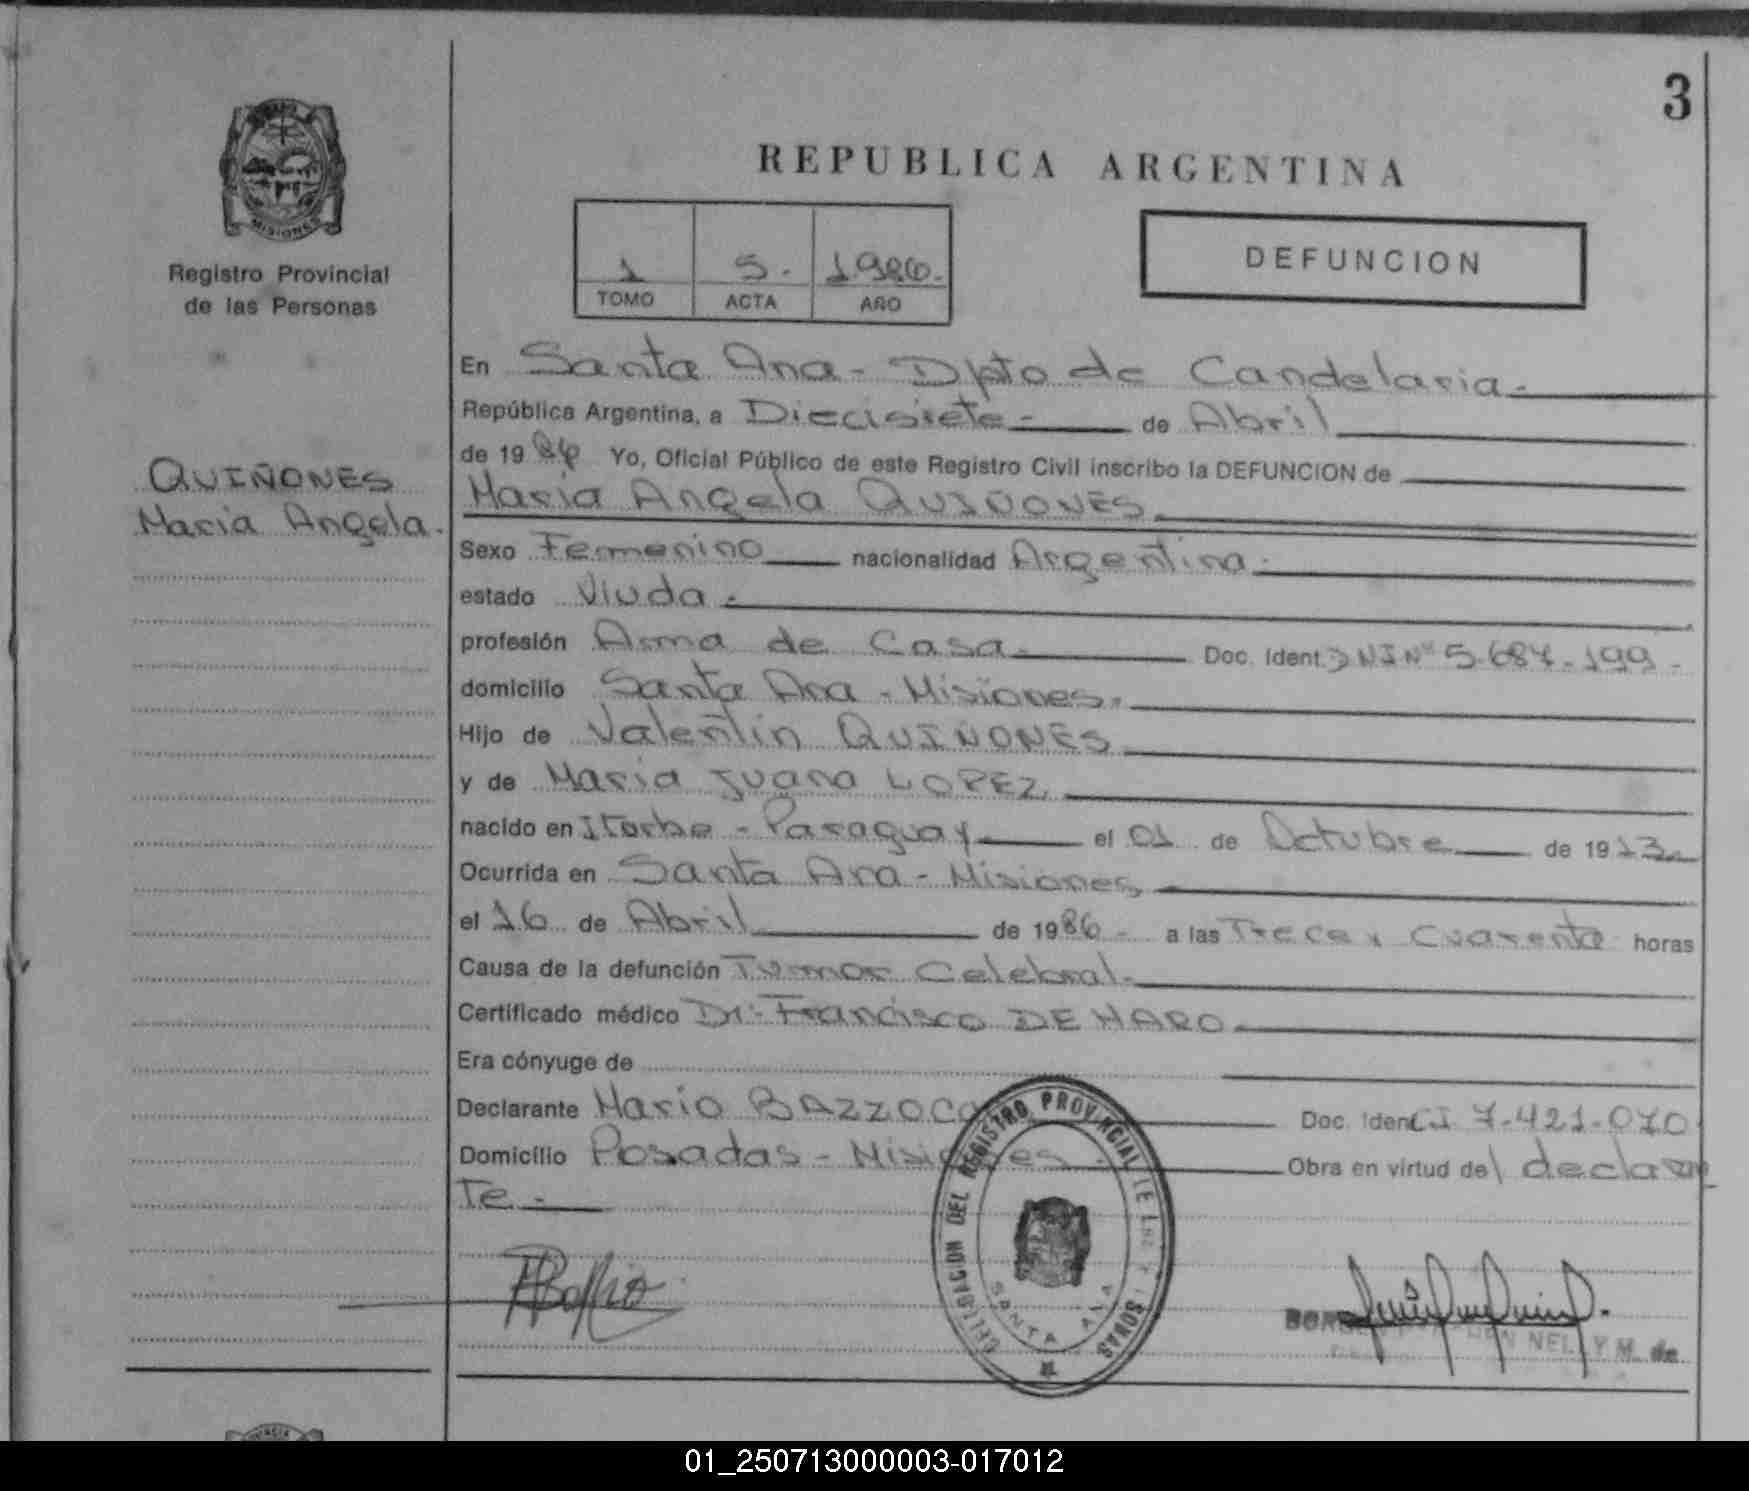 3
REPUBLICA ARGENTINA
MISIONES
Registro Provincial
de las Personas
1 5. 1.986.
TOMO ACTA AÑO
DEFUNCION
QUIÑONES
Maria Angela.
En Santa Ana - Dpto de Candelaria -
República Argentina, a Diecisiete - de Abril
de 1986 Yo, Oficial Público de este Registro Civil inscribo la DEFUNCION de
Maria Angela QUIÑONES
Sexo Femenino nacionalidad Argentina -
estado Viuda -
profesión Ama de Casa - Doc. Ident. DNI Nº 5.687.199 -
domicilio Santa Ana - Misiones.
Hijo de Valentin QUIÑONES
y de Maria Juana LOPEZ.
nacido en Iturbe - Paraguay el 01 de Octubre de 1913
Ocurrida en Santa Ana - Misiones
el 16 de Abril de 1986 - a las Trece y Cuarenta horas
Causa de la defunción Tumor Celebral -
Certificado médico Dr. Francisco DE HARO -
Era cónyuge de
Declarante Mario Doc. Ident CI 7.421.070
Domicilio Posadas - Misiones - Obra en virtud del declaran
te -
DELEGACION DEL REGISTRO PROVINCIAL DE LAS PERSONAS
SANTA ANA
NELLY M. de
01_250713000003-017012